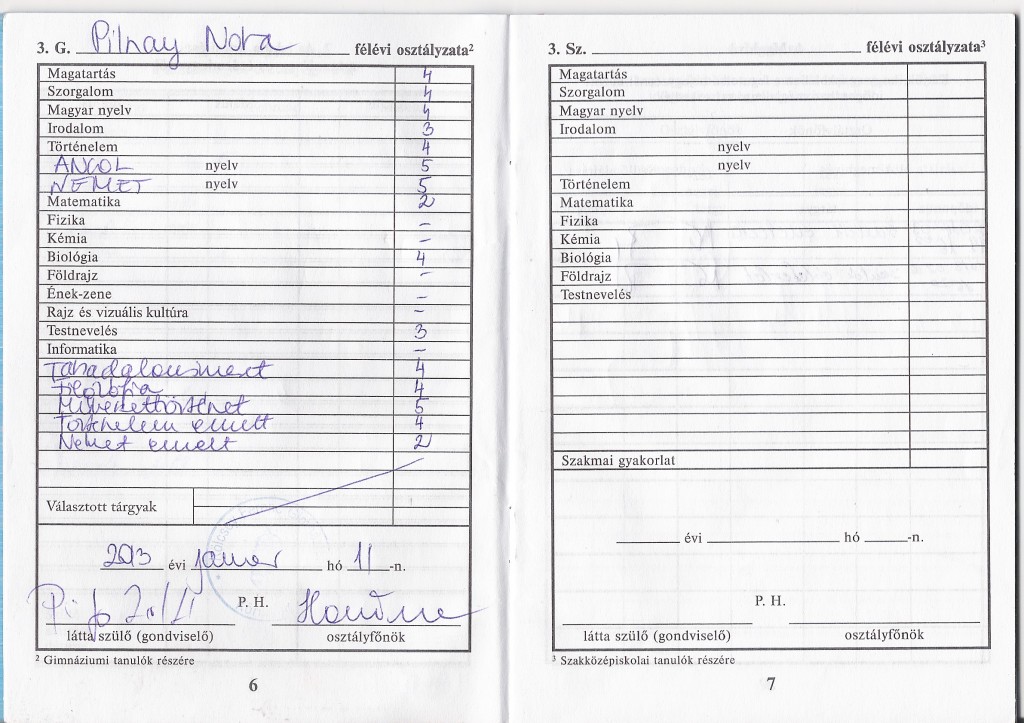 3. G. Pilnay Nora félévi osztályzata²
Magatartás 4
Szorgalom 4
Magyar nyelv 4
Irodalom 3
Történelem 4
ANGOL nyelv 5
NÉMET nyelv 5
Matematika 2
Fizika –
Kémia –
Biológia 4
Földrajz –
Ének-zene –
Rajz és vizuális kultúra –
Testnevelés 3
Informatika –
Társadalomismeret 4
Filozófia 4
Művészettörténet 5
Történelem emelt 4
Német emelt 2
Választott tárgyak
2013 évi január hó 11 -n.
P. H.
látta szülő (gondviselő) osztályfőnök
² Gimnáziumi tanulók részére
6
3. Sz. félévi osztályzata³
Magatartás
Szorgalom
Magyar nyelv
Irodalom
nyelv
nyelv
Történelem
Matematika
Fizika
Kémia
Biológia
Földrajz
Testnevelés
Szakmai gyakorlat
évi hó -n.
P. H.
látta szülő (gondviselő) osztályfőnök
³ Szakközépiskolai tanulók részére
7